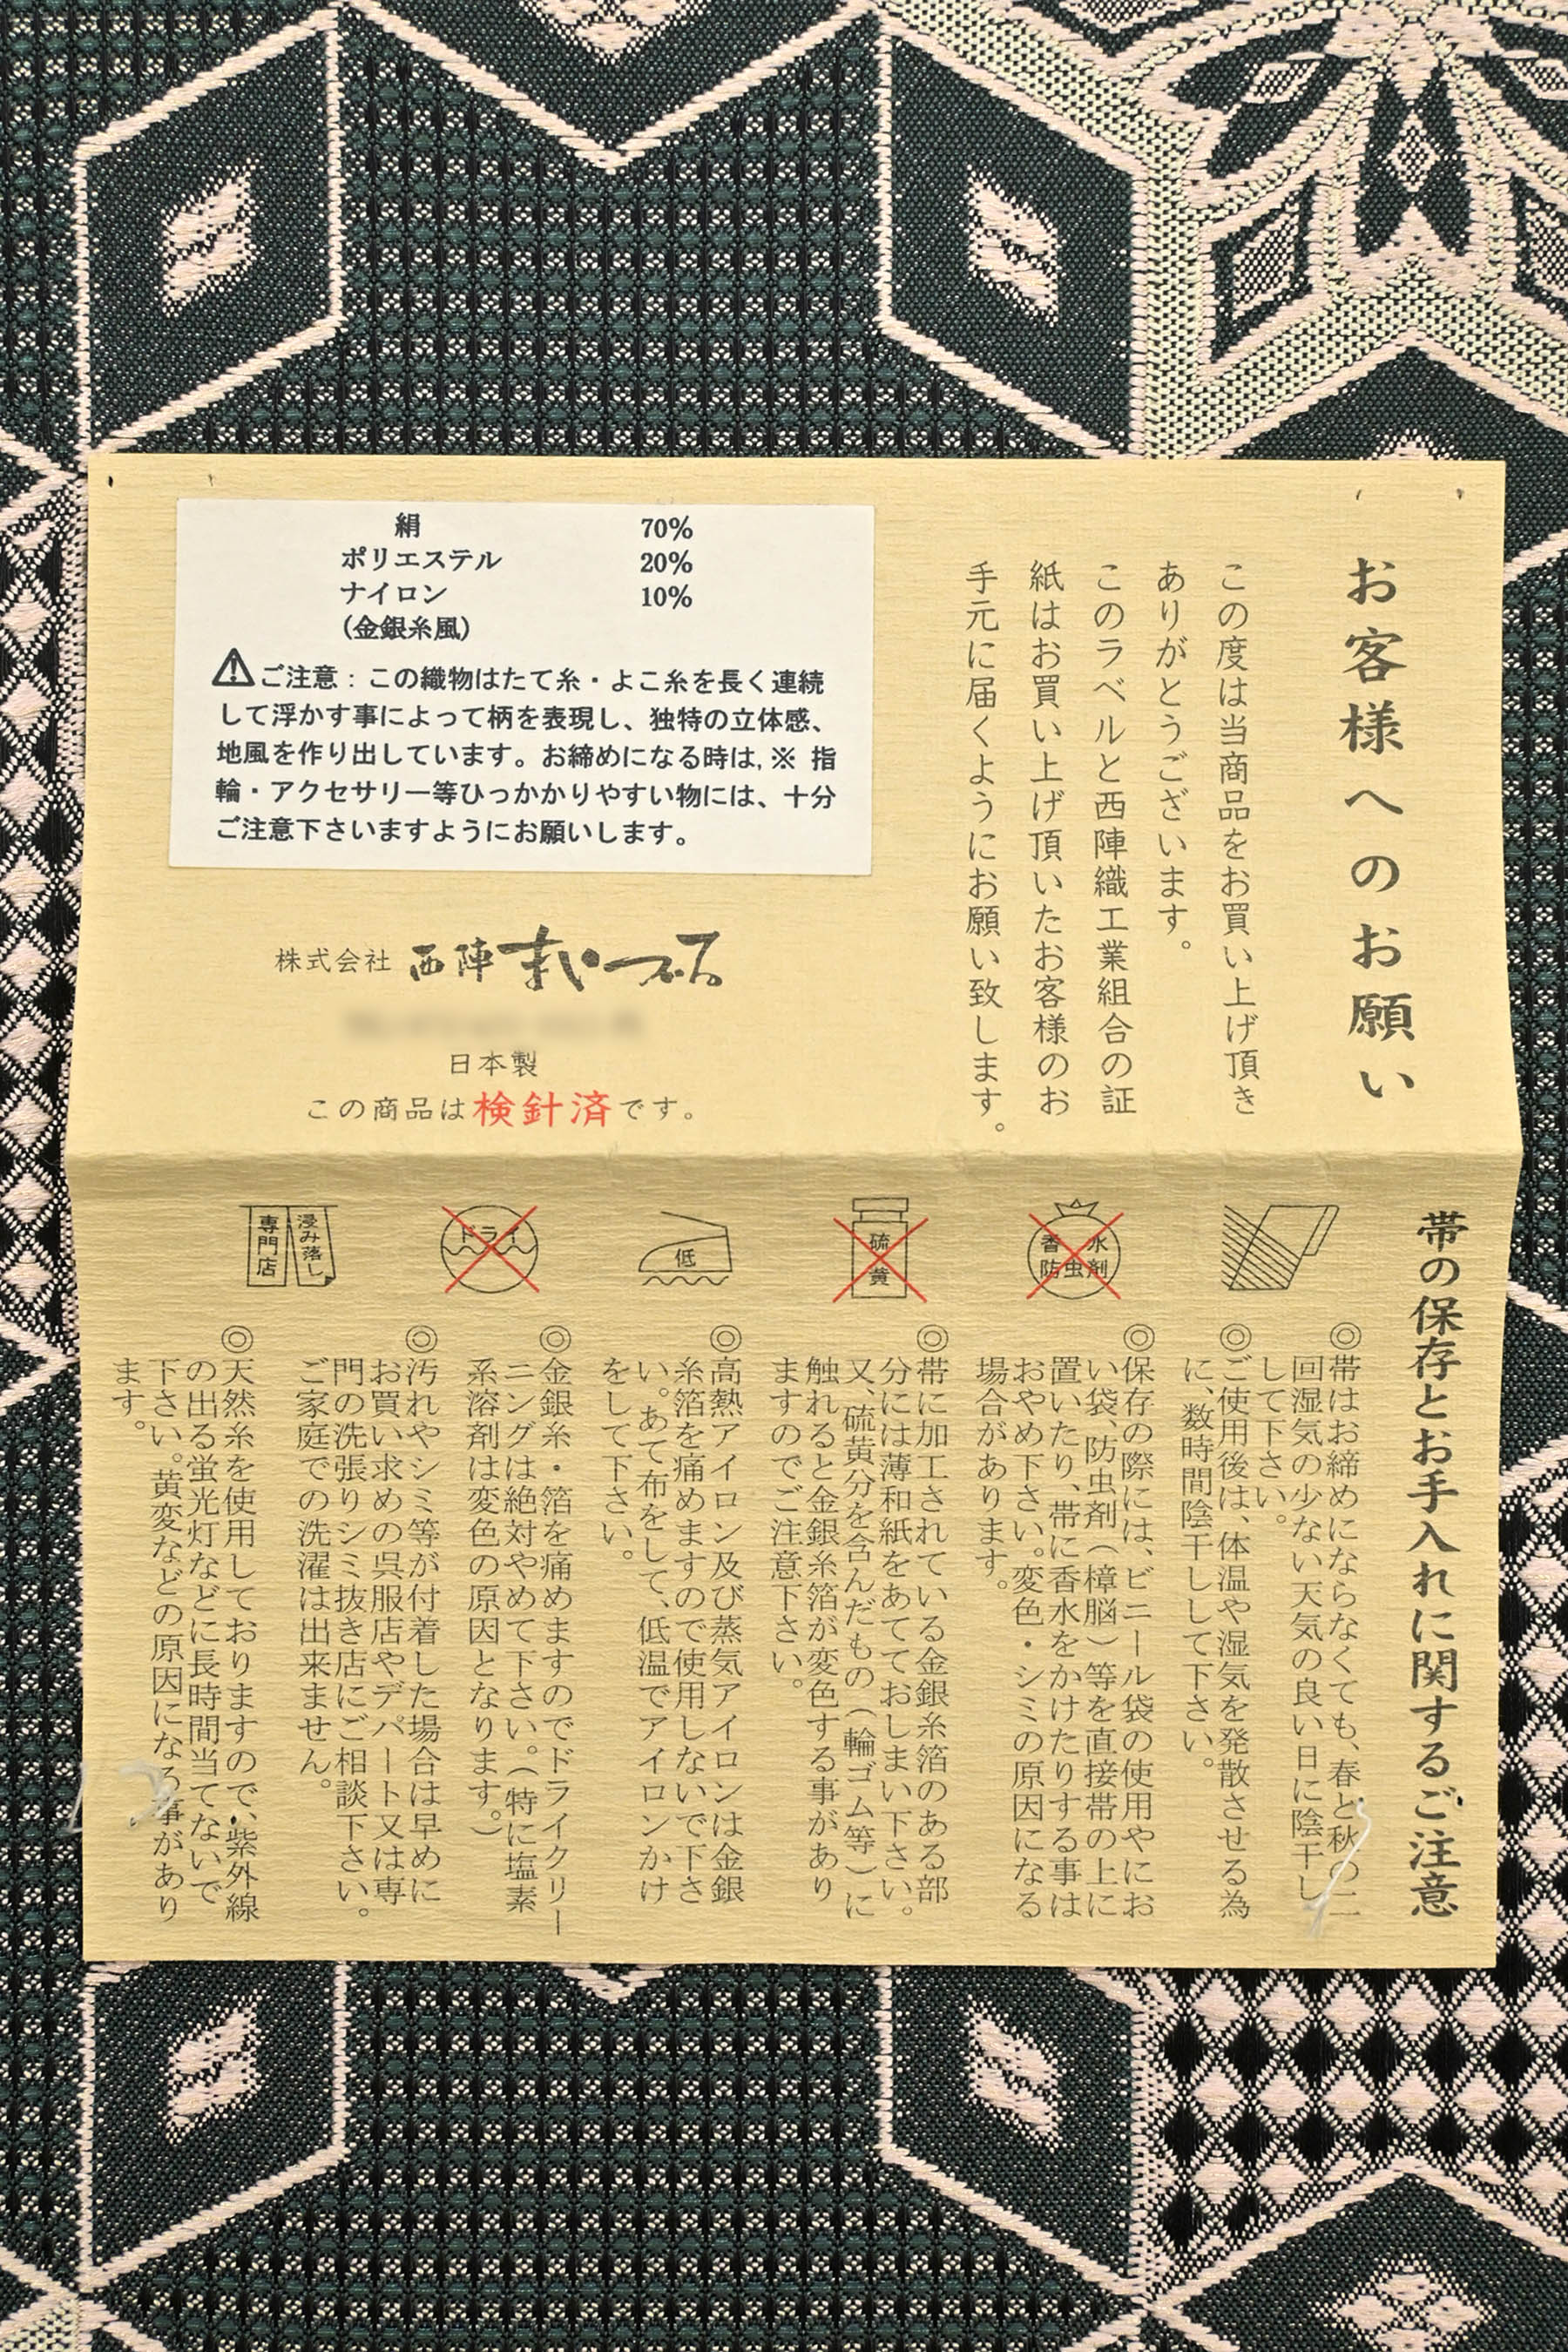 お客様へのお願い
この度は当商品をお買い上げ頂き
ありがとうございます。
このラベルと西陣織工業組合の証
紙はお買い上げ頂いたお客様のお
手元に届くようにお願い致します。
絹 70%
ポリエステル 20%
ナイロン 10%
(金銀糸風)
ご注意：この織物はたて糸・よこ糸を長く連続
して浮かす事によって柄を表現し、独特の立体感、
地風を作り出しています。お締めになる時は,※ 指
輪・アクセサリー等ひっかかりやすい物には、十分
ご注意下さいますようにお願いします。
株式会社 西陣まいづる
日本製
この商品は検針済です。
帯の保存とお手入れに関するご注意
香水
防虫剤
硫黄
低
ドライ
浸み落し
専門店
◎帯はお締めにならなくても、春と秋の二
回湿気の少ない天気の良い日に陰干し
して下さい。
◎ご使用後は、体温や湿気を発散させる為
に、数時間陰干しして下さい。
◎保存の際には、ビニール袋の使用やにお
い袋、防虫剤（樟脳）等を直接帯の上に
置いたり、帯に香水をかけたりする事は
おやめ下さい。変色・シミの原因になる
場合があります。
◎帯に加工されている金銀糸箔のある部
分には薄和紙をあてておしまい下さい。
又、硫黄分を含んだもの（輪ゴム等）に
触れると金銀糸箔が変色する事があり
ますのでご注意下さい。
◎高熱アイロン及び蒸気アイロンは金銀
糸箔を痛めますので使用しないで下さ
い。あて布をして、低温でアイロンかけ
をして下さい。
◎金銀糸・箔を痛めますのでドライクリー
ニングは絶対やめて下さい。（特に塩素
系溶剤は変色の原因となります。）
◎汚れやシミ等が付着した場合は早めに
お買い求めの呉服店やデパート又は専
門の洗張りシミ抜き店にご相談下さい。
ご家庭での洗濯は出来ません。
◎天然糸を使用しておりますので、紫外線
の出る蛍光灯などに長時間当てないで
下さい。黄変などの原因になる事があり
ます。